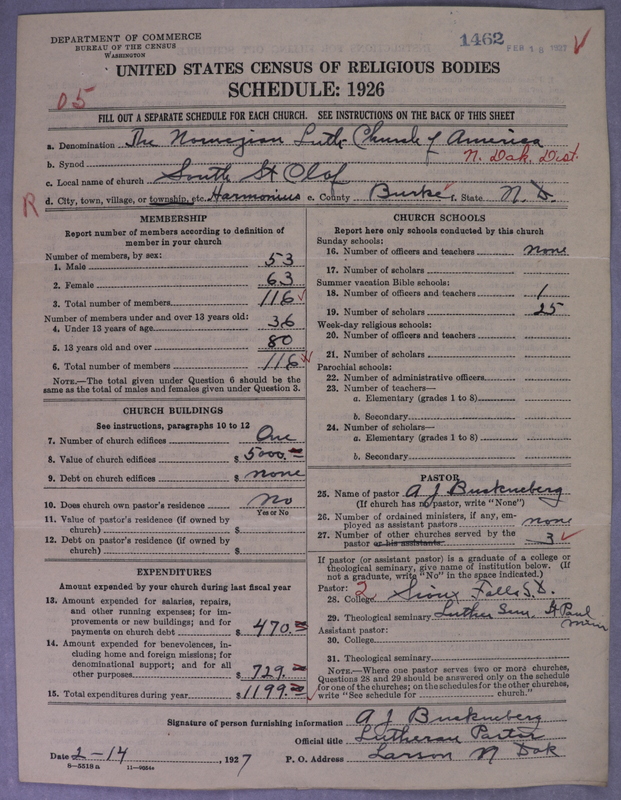 DEPARTMENT OF COMMERCE
BUREAU OF THE CENSUS
WASHINGTON
1462
FEB 18 1927
UNITED STATES CENSUS OF RELIGIOUS BODIES
SCHEDULE: 1926
05
FILL OUT A SEPARATE SCHEDULE FOR EACH CHURCH. SEE INSTRUCTIONS ON THE BACK OF THIS SHEET
a. Denomination The Norwegian Luth Church of America
b. Synod N. Dak. Dist.
c. Local name of church South St Olaf
R
d. City, town, village, or township, etc. Harmonius e. County Burke f. State N. D.
MEMBERSHIP
Report number of members according to definition of
member in your church
Number of members, by sex:
1. Male 53
2. Female 63
3. Total number of members 116
Number of members under and over 13 years old:
4. Under 13 years of age 36
5. 13 years old and over 80
6. Total number of members 116
NOTE.—The total given under Question 6 should be
same as the total of males and females given under Question 3.
CHURCH BUILDINGS
See instructions, paragraphs 10 to 12
7. Number of church edifices One
8. Value of church edifices $ 5000.
9. Debt on church edifices $ none
10. Does church own pastor's residence No
Yes or No
11. Value of pastor's residence (if owned by
church) $
12. Debt on pastor's residence (if owned by
church) $
EXPENDITURES
Amount expended by your church during last fiscal year
13. Amount expended for salaries, repairs,
and other running expenses; for im-
provements or new buildings; and for
payments on church debt $ 470.
14. Amount expended for benevolences, in-
cluding home and foreign missions; for
denominational support; and for all
other purposes $ 729.
15. Total expenditures during year $ 1199.
CHURCH SCHOOLS
Report here only schools conducted by this church
Sunday schools:
16. Number of officers and teachers none
17. Number of scholars
Summer vacation Bible schools:
18. Number of officers and teachers 1
19. Number of scholars 25
Week-day religious schools:
20. Number of officers and teachers
21. Number of scholars
Parochial schools:
22. Number of administrative officers
23. Number of teachers—
a. Elementary (grades 1 to 8)
b. Secondary
24. Number of scholars—
a. Elementary (grades 1 to 8)
b. Secondary
PASTOR
25. Name of pastor A J
(If church has no pastor, write "None")
26. Number of ordained ministers, if any, em-
ployed as assistant pastors none
27. Number of other churches served by the
pastor or his assistants 3
If pastor (or assistant pastor) is a graduate of a college or
theological seminary, give name of institution below. (If
not a graduate, write "No" in the space indicated.)
Pastor: 2
28. College Sioux Falls S. D.
29. Theological seminary Luther Sem. St Paul
Minn
Assistant pastor:
30. College
31. Theological seminary
NOTE.—Where one pastor serves two or more churches,
Questions 28 and 29 should be answered only on the schedule
for one of the churches; on the schedules for the other churches,
write "See schedule for church."
Signature of person furnishing information A J
Official title Lutheran Pastor
Date 2-14, 1927 P. O. Address Larson N Dak
8—5518 a